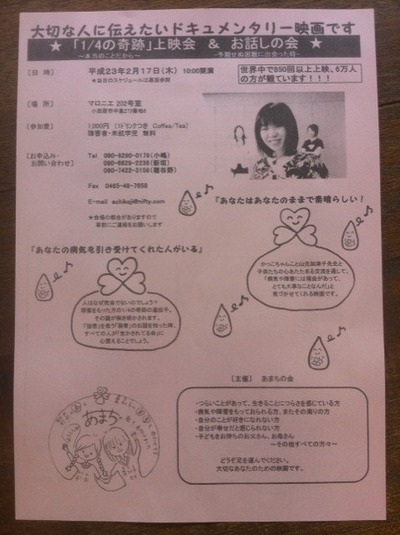 大切な人に伝えたいドキュメンタリー映画です
★「1/4の奇跡」上映会 & お話しの会 ★
～本当のことだから～ -予期せぬ困難に出会った時-
【日 時】 平成23年2月17日(木) 10:00開演
★当日のスケジュールは裏面参照
世界中で850回以上上映、8万人の方が観ています!!!
【場 所】 マロニエ 202号室
【参加費】 1,000円 (1ドリンクつき Coffee/Tea)
障害者・未就学児 無料
【お申込み・お問い合わせ】
Tel 090-6290-0179(小嶋)
Fax 0465-48-7658
★会場の都合がありますので
事前にご連絡をお願いします
『あなたはあなたのままで素晴らしい!
『あなたの病気を引き受けてくれた人がいる』
かっこちゃんこと山元加津子先生と
子供たちの心あたたまる交流を通して、
「病気や障害には理由があって、
とても大事なことなんだ」と
気づかせてくれる映画です。
人はなぜ完全でないのでしょう?
障害をもった方の1/4の奇跡の遺伝子。
その謎が解き明かされます。
すべての人が「生かされてる命」に
心震えることでしょう。
あまち
【主催】 あまちの会
・つらいことがあって、生きることにつらさを感じている方
・病気や障害をもっておられる方、またその周りの方
・自分のことが好きになれない方
・自分が幸せだと感じられない方
・子どもをお持ちのお父さん、お母さん
～その他すべての方々～
どうぞ足を運んでください。
大切なあなたのための映画です。